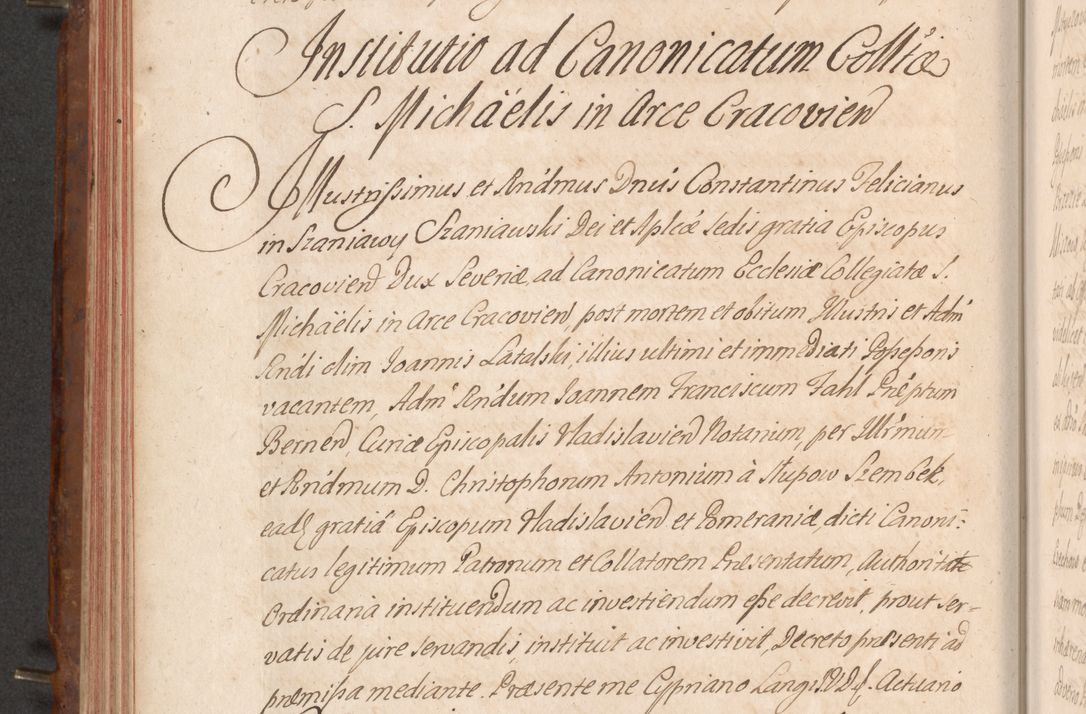 Institutio ad Canonicatum Collῖæ
S. Michäelis in Arce Cracovien̄
Illustrissimus et Rńdmus Dnús Constantinus Felicianus
in Szaniawy Szaniawski Dei et Aplicæ Sedis gratia Episcopus
Cracovien̄ Dux Severiæ, ad Canonicatum Ecclesiæ Collegiatæ S.
Michäelis in Arce Cracovien̄, post mortem et obitum Illustris et Adm̃
Rńdi olim Joannis Latalski, illius ultimi et immediati Possessoris
vacantem, Adm̃ Rńdum Joannem Franciscum Fahl Præptum
Bernen̄, Curiæ Episcopalis Vladislavien̄ Notarium, per Illrḿum
et Rńdmum D. Christophorum Antonium à Słupow Szembek,
ead̄ gratiâ Episcopum Vladislavien̄ et Pomeraniæ, dicti Canoni-
catus legitimum Patronum et Collatorem Præsentatum, Authoritate
Ordinaria instituendum ac investiendum esse decrevit, prout ser-
vatis de jure servandis, instituit ac investivit, Decreto præsenti ad
præmissa mediante. Præsente me Cypriano Langi Actuario